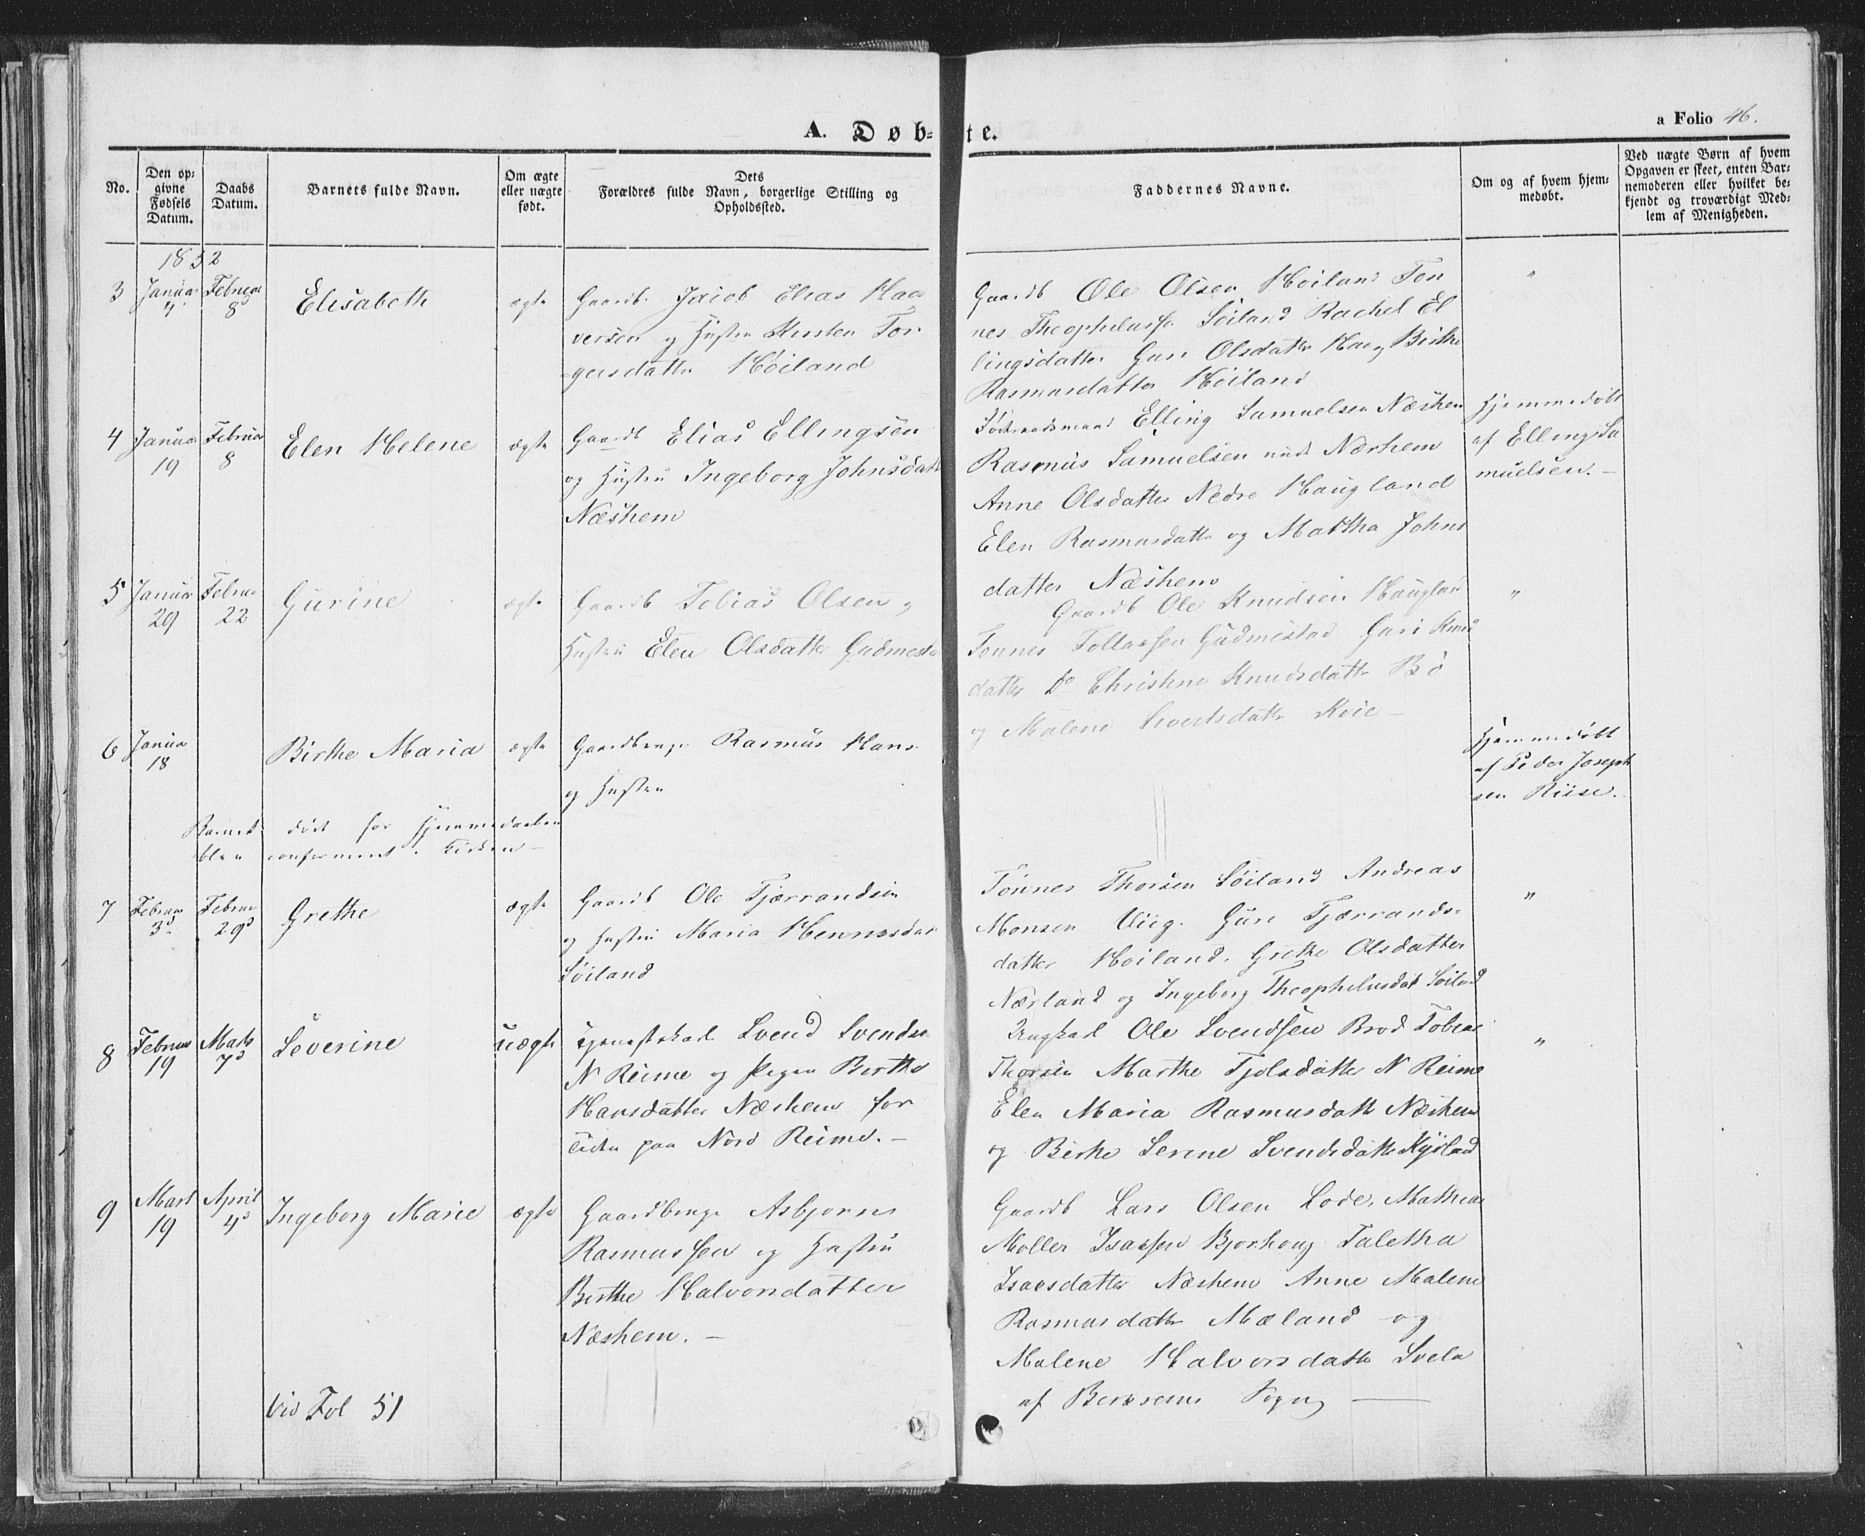 A. Døb-
te.
a Folio 46.
No.
Den op-
givne
Fødsels
Datum.
Daabs
Datum.
Barnets fulde Navn.
Om ægte
eller uægte
født.
Dets
Forældres fulde Navn, borgerlige Stilling og
Opholdssted.
Faddernes Navne.
Om og af hvem hjem-
medøbt.
Ved uægte Børn af hvem
Opgaven er skeet, enten Bar-
nemoderen eller hvilket be-
kjendt og troværdigt Med-
lem af Menigheden.
1852
3
Januar
4
Februar
8
Elisabeth
ægte
Gaardb. Jacob Elias Haa
versen og Hustru Kirsten Tor
gersdatter Höiland
Gaardb Ole Olsen Höiland Ton
nes Theophilussen Söiland Rachel El
lingsdatter Guri Olsdatter Haa og Birthe
Rasmusdatter Höiland
"
4
Januar
19
Februar
8
Elen Helene
ægte
Gaardb Elias Ellingsen
og Hustru Ingeborg Johnsdatt
Næshem
Elling Samuelsen Næshem
Rasmus Samuelsen Nærhem
Anne Olsdatter Nedre Haugland
Elen Rasmusdatter og Martha Johns
datter Næshem
Hjemmedøbt
af Elling Sa
muelsen. –
5
Januar
29
Februar
22
Gurine
ægte
Gaardb Tobias Olsen og
Hustru Elen Olsdatter Gudmesta
Gaardb Ole Knudsen Hauglan
Tonnes Tollassen Gudmestad Guri Knud
datter Do Christine Knudsdatter Bö
og Malene Sivertsdatter Kvie –
"
6
Januar
18
Birthe Maria
ægte
Gaardbruger Rasmus Hans
og Hustru
Hjemmedøbt
af Peder Joseph
sen Riise. –
Barnet døde før Hjemmedaaben
blev confirmeret i Kirken –
7
Februar
3d
Februar
29d
Grethe
ægte
Gaardb Ole Tjærrandsen
og Hustru Maria Hennesdat
Söiland
Tönnes Thorsen Söiland Andreas
Monsen Guri Tjærrands-
datter Höiland. Grethe Olsdatter
Nærland og Ingeborg Theophilusdat Söiland
"
8
Februar
19
Marts
7d
Severine
uægte
Tjenestekarl Svend Svends
N Reime og Pigen Berthe
Hansdatter Næshem for
Tiden paa Nord Reime. –
Ungkarl Ole Svendsen Brod Tobias
Thorsen Marthe Tjolsdatter N Reime
Elen Maria Rasmusdatt Næshem
og Birthe Serene Svendsdatter
"
9
Mart
19
April
4d
Ingeborg Marie
ægte
Gaardbruger Asbjorn
Rasmussen og Hustru
Berthe Halvorsdatter
Næshem. –
Gaardb Lars Olsen Lode, Mathias
Moller Isacsen Bjorhoug Taletha
Isacsdatter Næshem Anne Malene
Rasmusdatter Mæland og
Malene Halvorsdatter Svela
af Berkrems Sogn –
Vid Fol 51